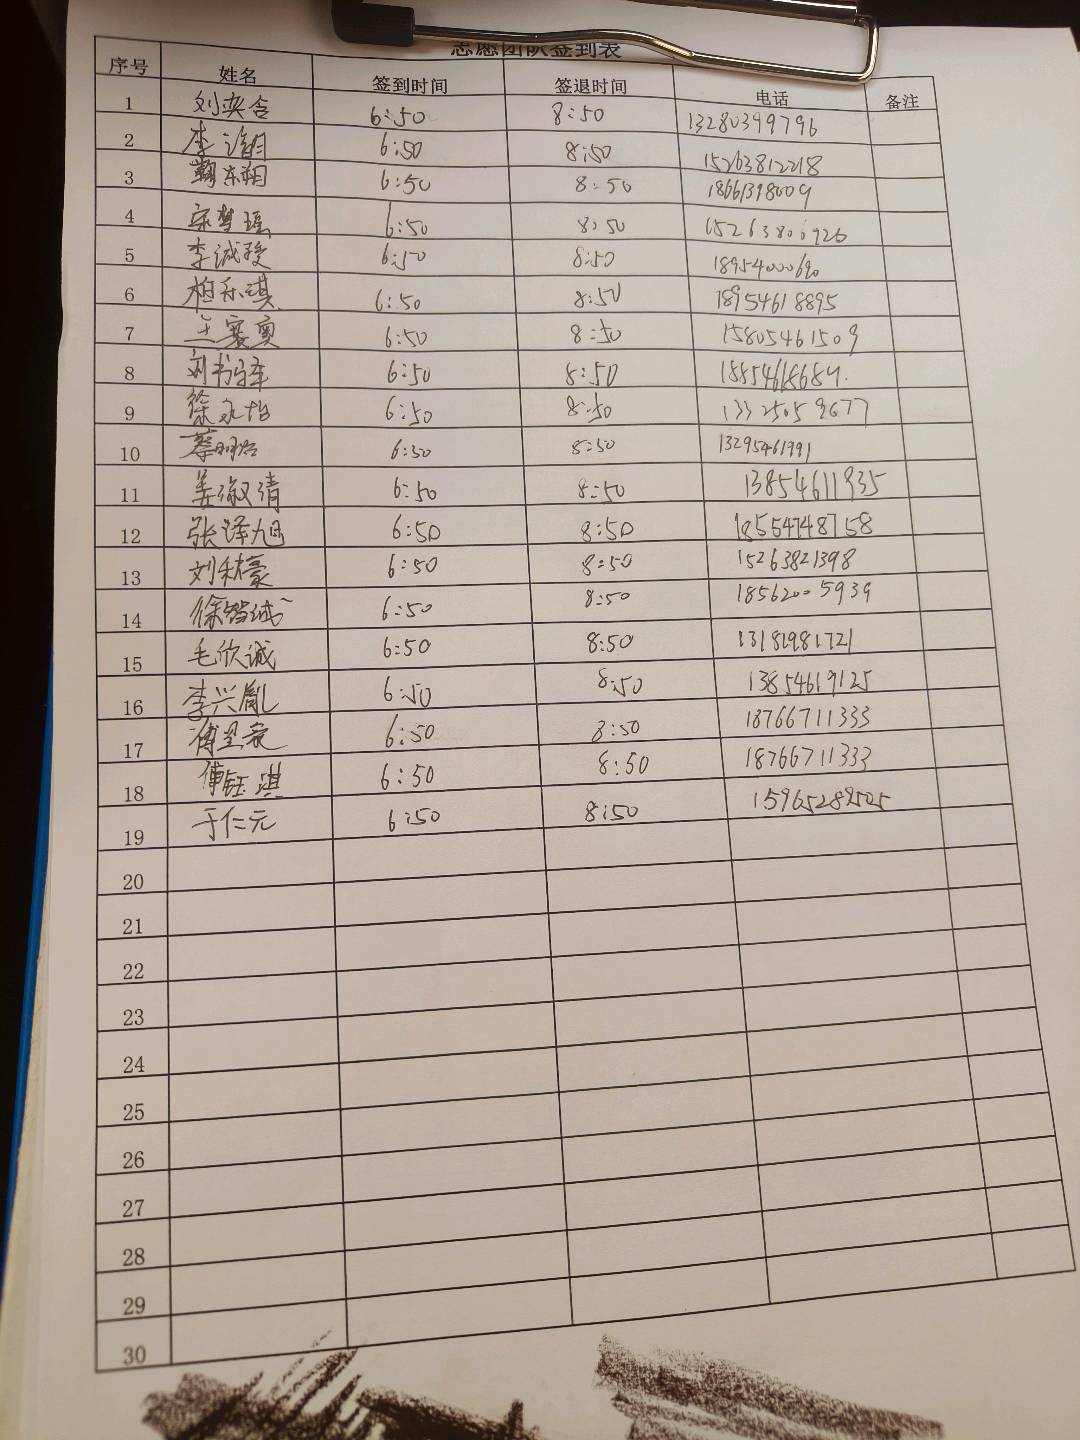 志愿团队签到表
序号 姓名 签到时间 签退时间 电话 备注
1 刘奕含 6:50 8:50 13280399796
2 李 6:50 8:50 15263812218
3 东翔 6:50 8:50 18661398009
4 宋梦瑶 6:50 8:50 15263800926
5 李诚骏 6:50 8:50 18954000690
6 柏乐淇 6:50 8:50 18954618895
7 王寰奥 6:50 8:50 15805461509
8 刘书 6:50 8:50
9 徐永怡 6:50 8:50 13325059677
10 蔡明治 6:50 8:50 13295461991
11 姜淑清 6:50 8:50 13854611935
12 张泽旭 6:50 8:50 18554748758
13 刘秋豪 6:50 8:50 15263821398
14 徐智诚 6:50 8:50 18562005939
15 毛欣诚 6:50 8:50 13181981721
16 李兴胤 6:50 8:50 13854619125
17 傅昱宸 6:50 8:50 18766711333
18 傅钰淇 6:50 8:50 18766711333
19 于仁元 6:50 8:50 15965289505
20
21
22
23
24
25
26
27
28
29
30